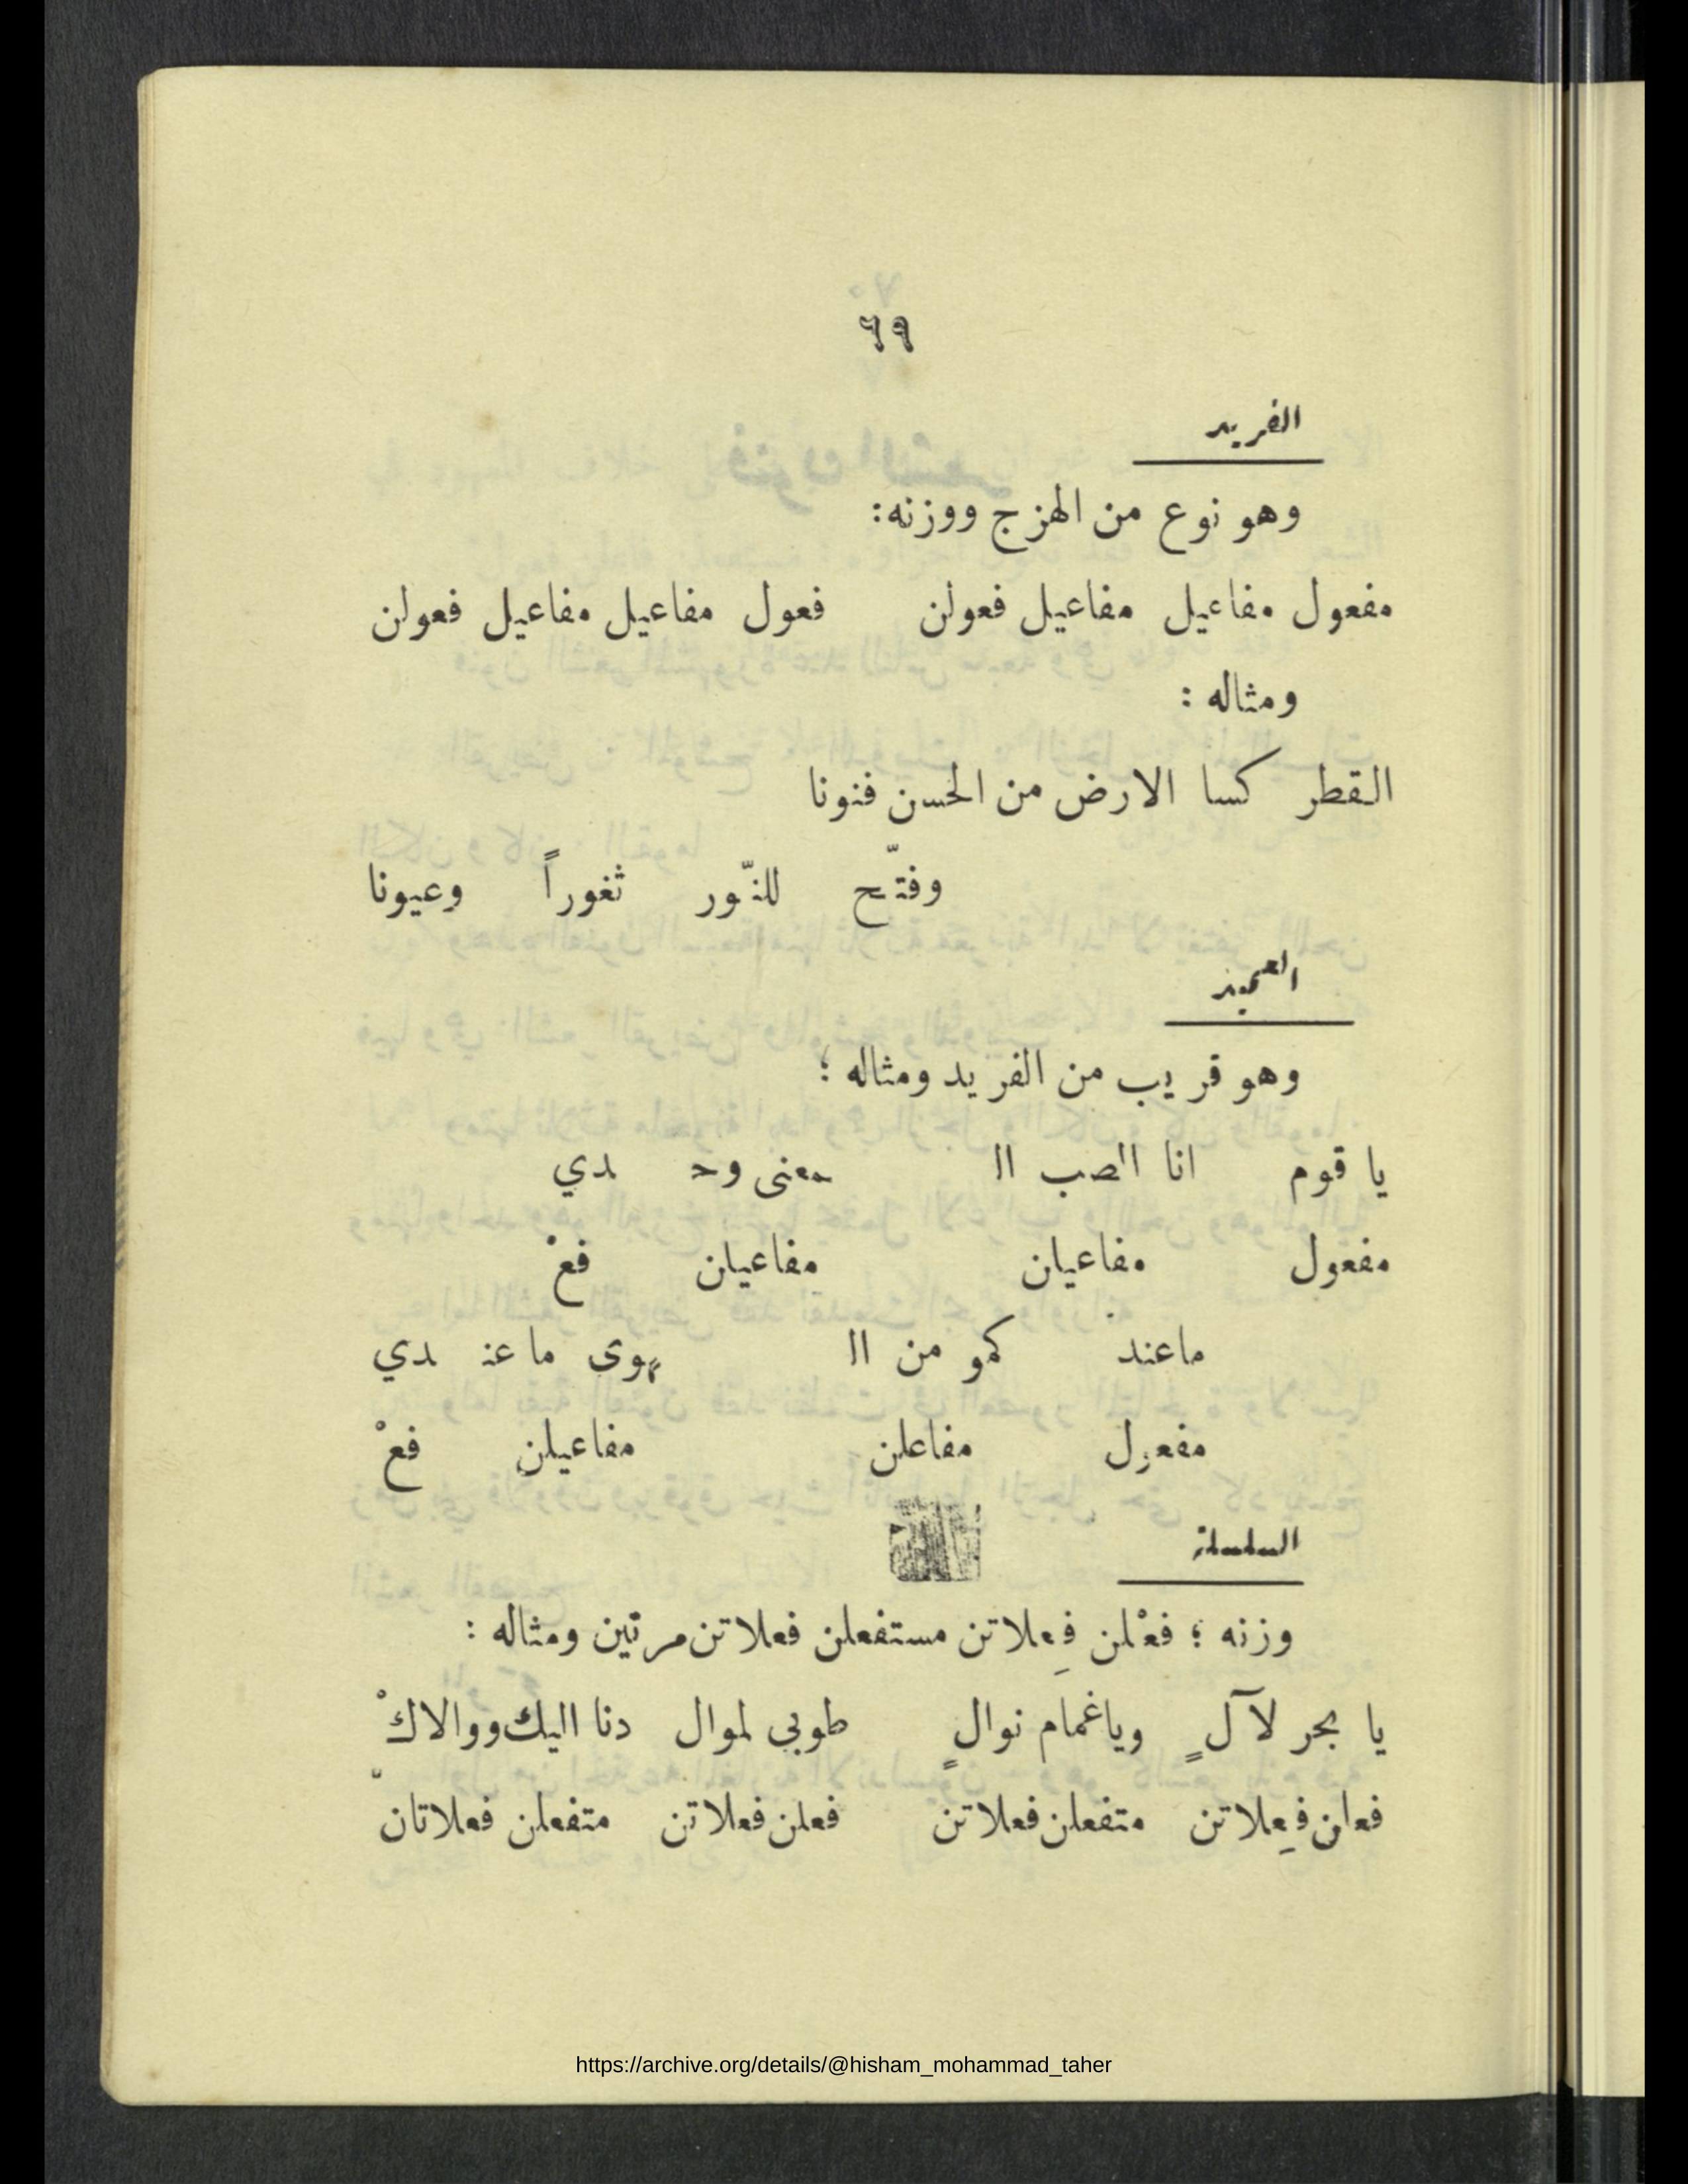 ٦٩
الفريد
وهو نوع من الهزج ووزنه:
مفعول مفاعيل مفاعيل فعولن فعول مفاعيل مفاعيل فعولن
ومثاله :
القطر كسا الارض من الحسن فنونا
وفتّح للنّور ثغوراً وعيونا
العميد
وهو قريب من الفريد ومثاله ؛
يا قوم انا الصب ال معنى وحـ دي
مفعول مفاعيلن مفاعيلن فعْ
ماعند كمو من ال هوى ما عنـ دي
مفعول مفاعلن مفاعيلن فعْ
السلسلة
وزنه ؛ فعْلن فِعلاتن مستفعلن فعلاتن مرتين ومثاله :
يا بحر لآلٍ وياغمام نوالٍ طوبي لموال دنا اليك ووالاكْ
فعلن فِعلاتن متفعلن فعلاتن فعلن فعلاتن متفعلن فعلاتانْ
https://archive.org/details/@hisham_mohammad_taher